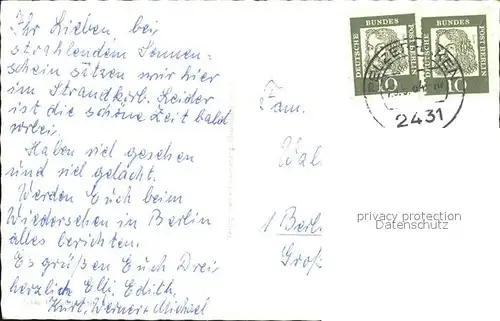 Ihr Lieben, bei
strahlendem Sonnen-
schein sitzen wir hier
im Strandkorb. Leider
ist die schöne Zeit bald
vorbei.
Haben viel gesehen
und viel gelacht.
Werden Euch beim
Wiedersehen in Berlin
alles berichten.
Es grüßen Euch Drei
herzlich Elli, Edith,
Kurt, Werner + Michael
DEUTSCHE BUNDESPOST BERLIN
10
DEUTSCHE BUNDESPOST BERLIN
10
2431
Fam.
Wal
1 Berl
Groß
privacy protection
Datenschutz